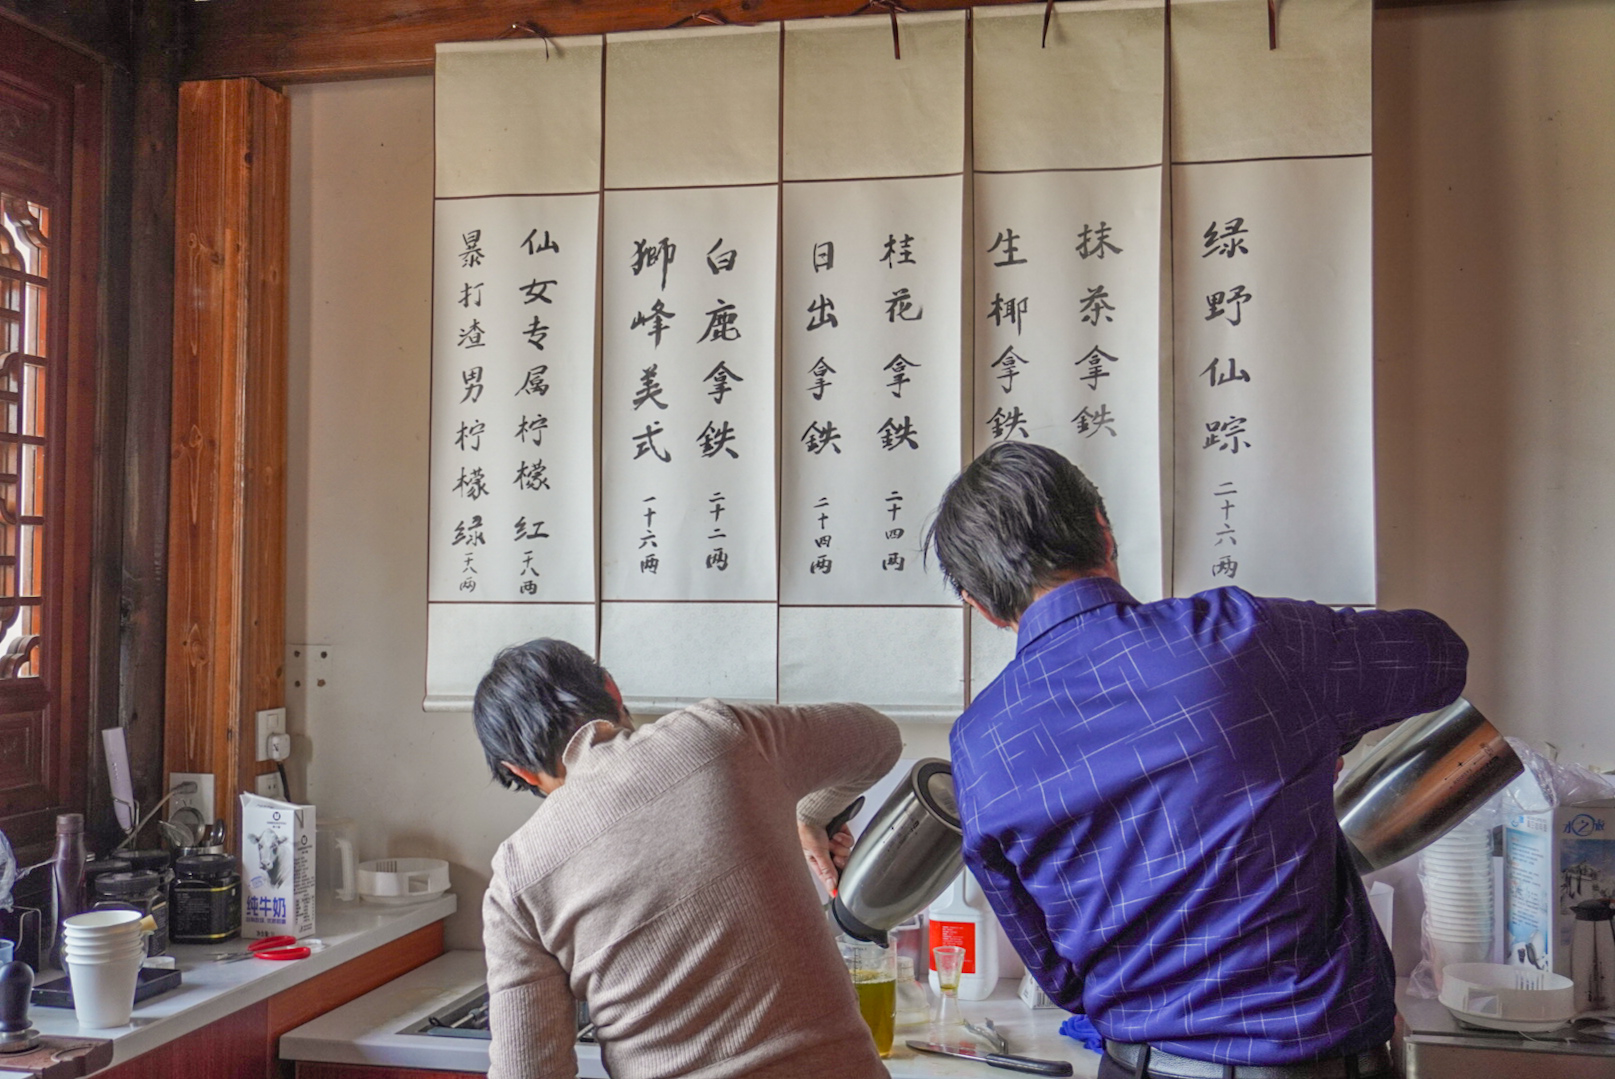 绿野仙踪 二十六两
抹茶拿鉄
生椰拿鉄
桂花拿鉄 二十四两
日出拿鉄 二十四两
白鹿拿鉄 二十二两
獅峰美式 一十六两
仙女专属柠檬红 十八两
暴打渣男柠檬绿 十八两
纯牛奶
水之旅